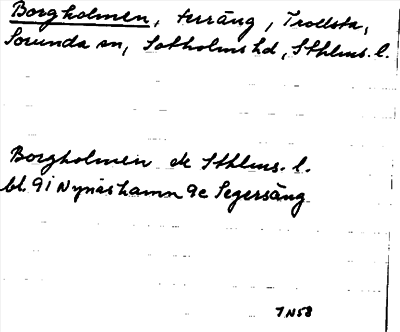 Borgholmen, terräng, Trollsta,
Sorunda sn, Sotholms hd, Sthlms. l.
Borgholmen ek Sthlms. l.
bl. 9i Nynäshamn 9e Segersäng
7 N58